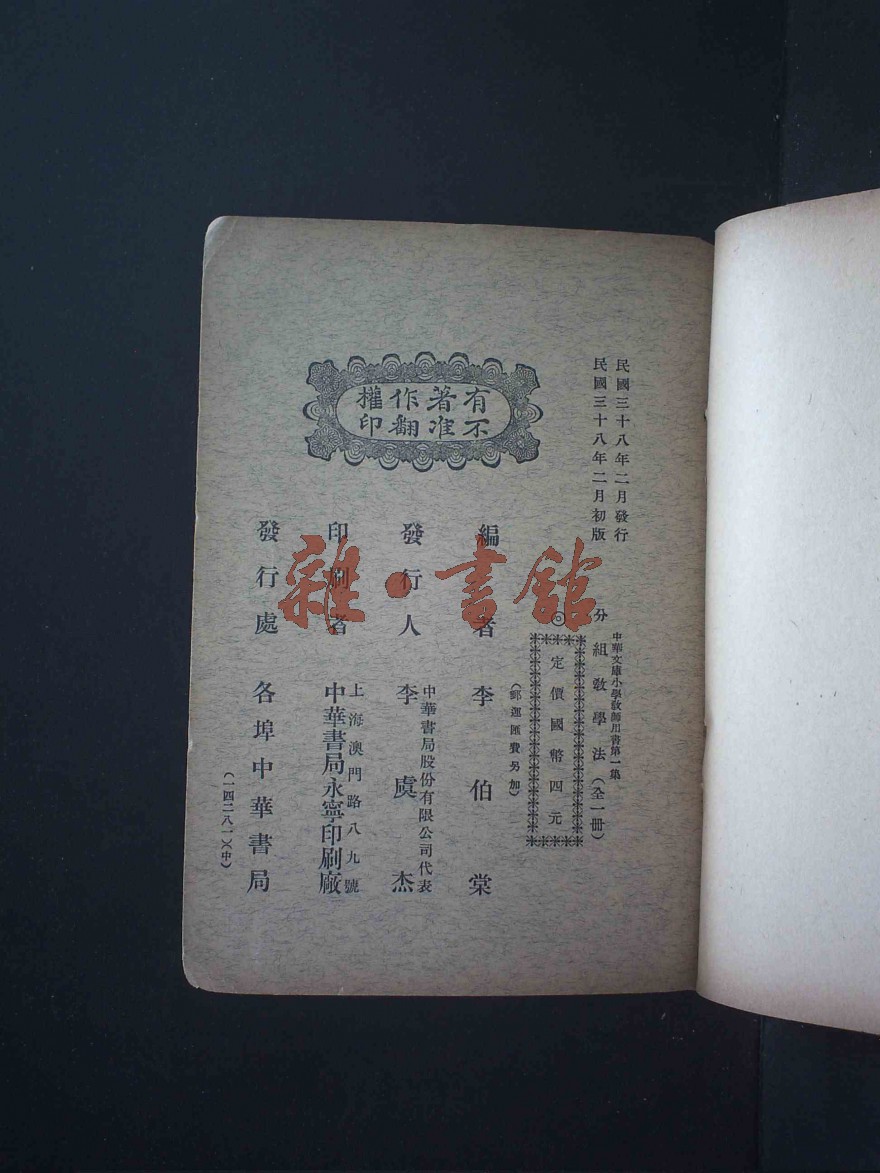 民國三十八年二月發行
民國三十八年二月初版
中華文庫小學教師用書第一集
分組教學法（全一冊）
◎定價國幣四元
（郵運匯費另加）
有著作權
不准翻印
編者 李伯棠
中華書局股份有限公司代表
發行人 李虞杰
上海澳門路八九號
印刷者 中華書局永寧印刷廠
發行處 各埠中華書局
（一四二八一）（中）
雜·書館